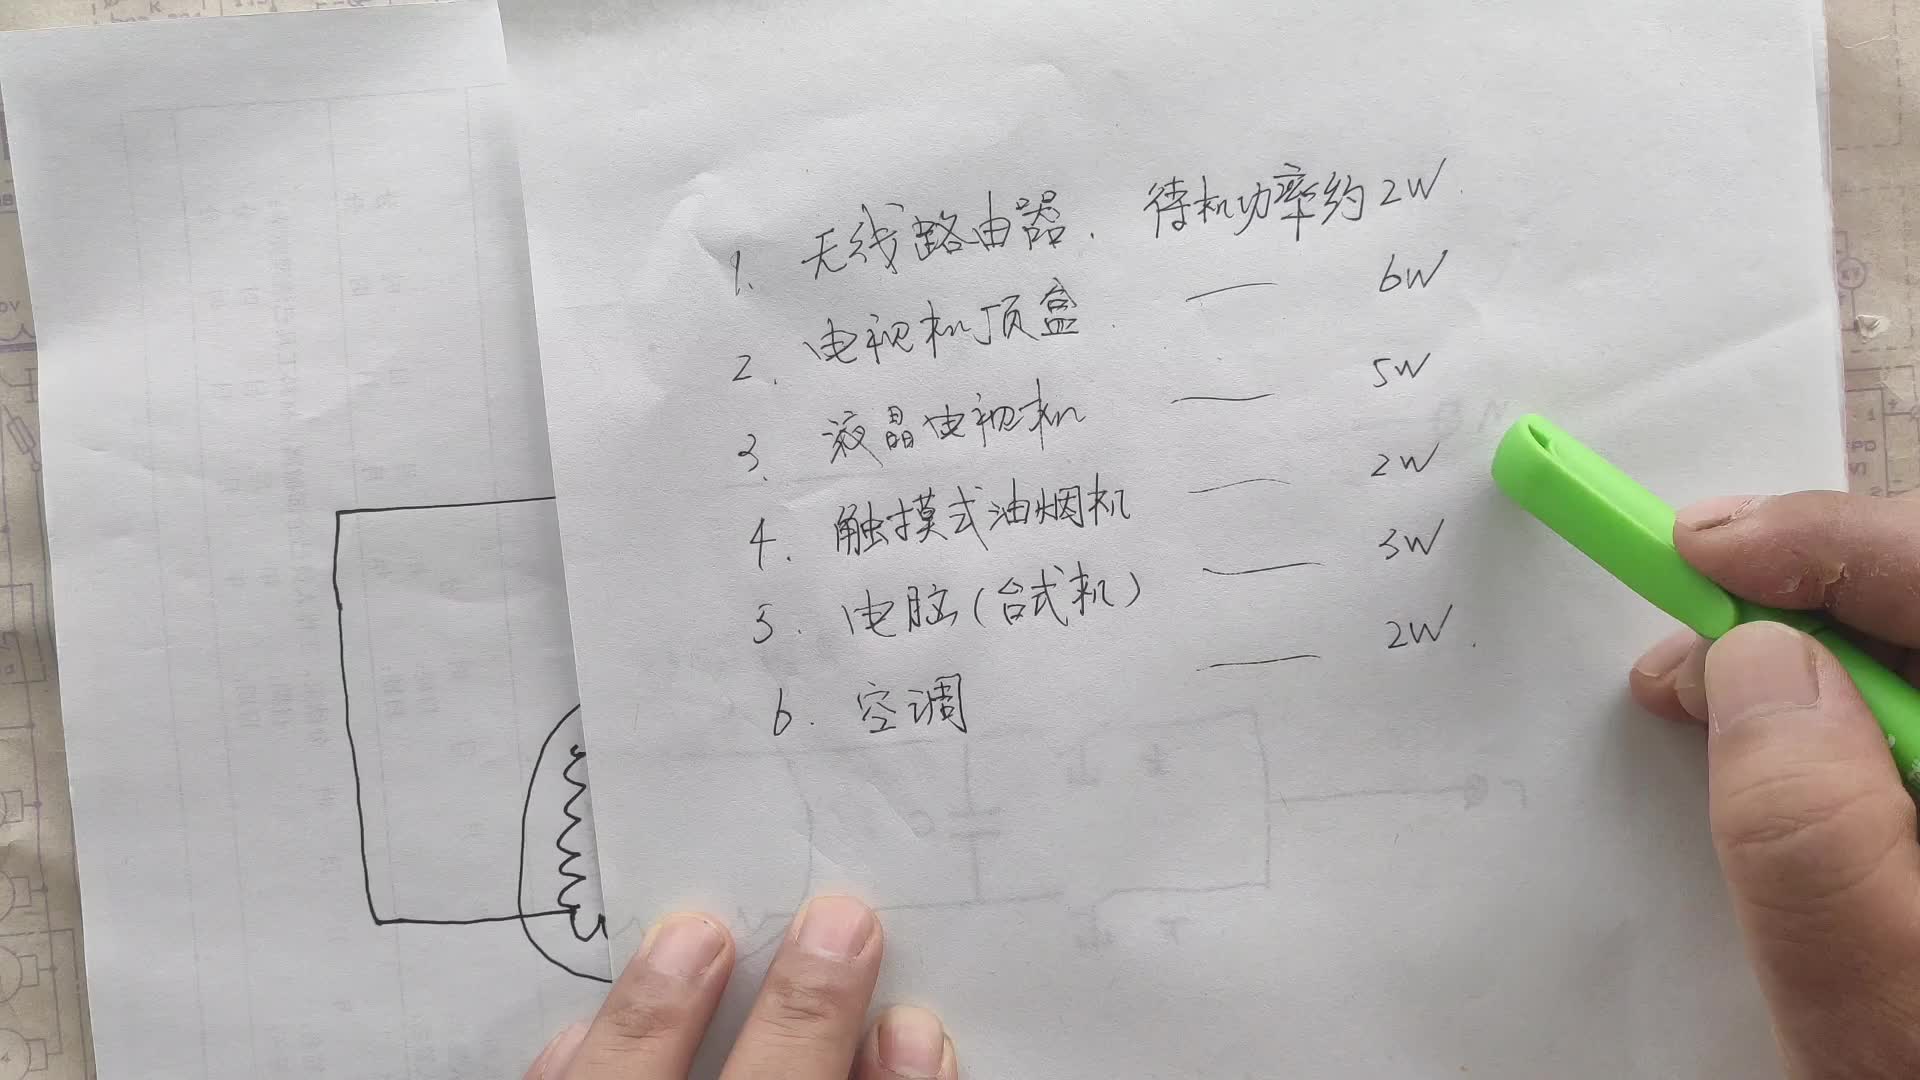 1. 无线路由器. 待机功率约2W.
2. 电视机顶盒. — 6W
3. 液晶电视机 — 5W
4. 触摸式油烟机 — 2W
5. 电脑(台式机) — 3W
6. 空调 — 2W.